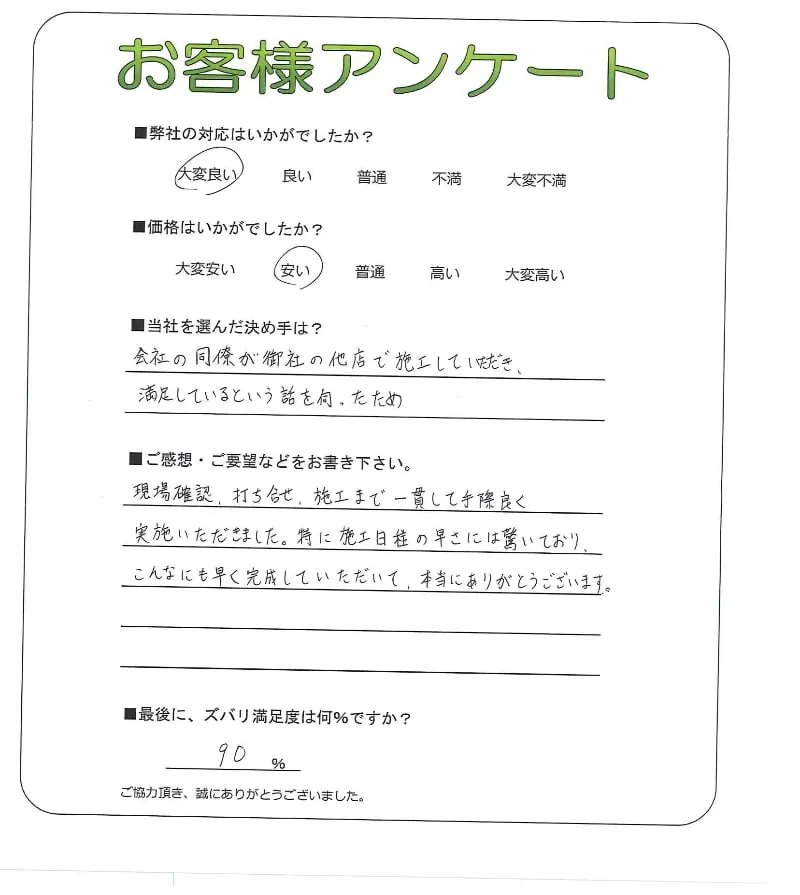 お客様アンケート
■弊社の対応はいかがでしたか？
大変良い 良い 普通 不満 大変不満
■価格はいかがでしたか？
大変安い 安い 普通 高い 大変高い
■当社を選んだ決め手は？
会社の同僚が御社の他店で施工していただき、
満足しているという話を伺ったため
■ご感想・ご要望などをお書き下さい。
現場確認、打ち合せ、施工まで一貫して手際良く
実施いただきました。特に施工日程の早さには驚いており、
こんなにも早く完成していただいて、本当にありがとうございます。
■最後に、ズバリ満足度は何%ですか？
90 %
ご協力頂き、誠にありがとうございました。